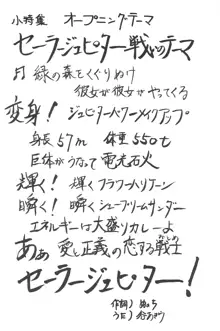 小特集 オープニング・テーマ
セーラージュピター戦いのテーマ
♬ 緑の森をくぐりぬけ
彼女が彼女がやってくる
変身! ジュピターパワーメイクアップ
身長57m 体重550t
巨体がうなって電光石火
輝く! 輝くフラワーハリケーン
瞬く! 瞬くシュープリームサンダー
エネルギーは大盛りカレーよ
あぁ 愛と正義の恋する戦士
セーラージュピター!
作詞)
うた)